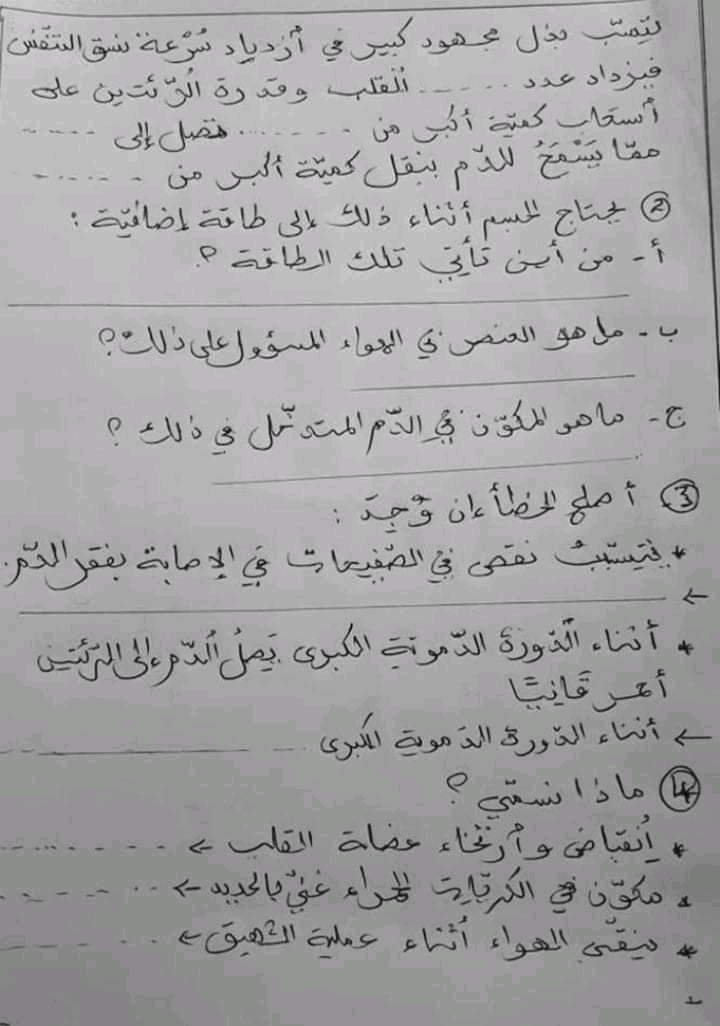 يتسبّب بذل مجهود كبير في أزدياد سُرْعة نسق التنفّس
فيزداد عدد ...... القلب وقدرة الرّئتين على
أستعاب كميّة أكبر من ........ تصل إلى ......
ممّا يَسْمَحُ للدّم بنقل كميّة أكبر من ......
② يحتاج الجسم أثناء ذلك إلى طاقة إضافيّة :
أ- من أين تأتي تلك الطاقة ؟
ب- ما هو العنصر في الهواء المسؤول على ذلك؟
ج- ما هو المكوّن في الدّم المتدخّل في ذلك ؟
③ أصلح الخطأ إن وُجِدَ :
* يتسبّبُ نقص في الصّفيحات في الإصابة بفقر الدّم.
←
* أثناء الدّورة الدّمويّة الكبرى يَصِلُ الدّم إلى الرّئتين
أحمر قَانِيًّا
← أثناء الدّورة الدّمويّة الكبرى ......
④ ماذا نسمّي ؟
* إنقباض وأرتخاء عضلة القلب ← ......
* مكوّن في الكريّات الحمراء غنيّ بالحديد ← ......
* ينقّي الهواء أثناء عملية الشهيق ← ......